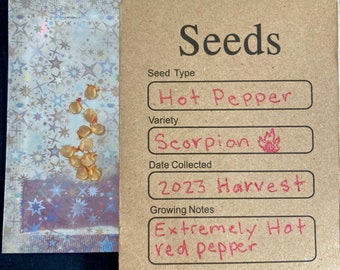 Seeds
Seed Type
Hot Pepper
Variety
Scorpion
Date Collected
2023 Harvest
Growing Notes
Extremely Hot
red pepper